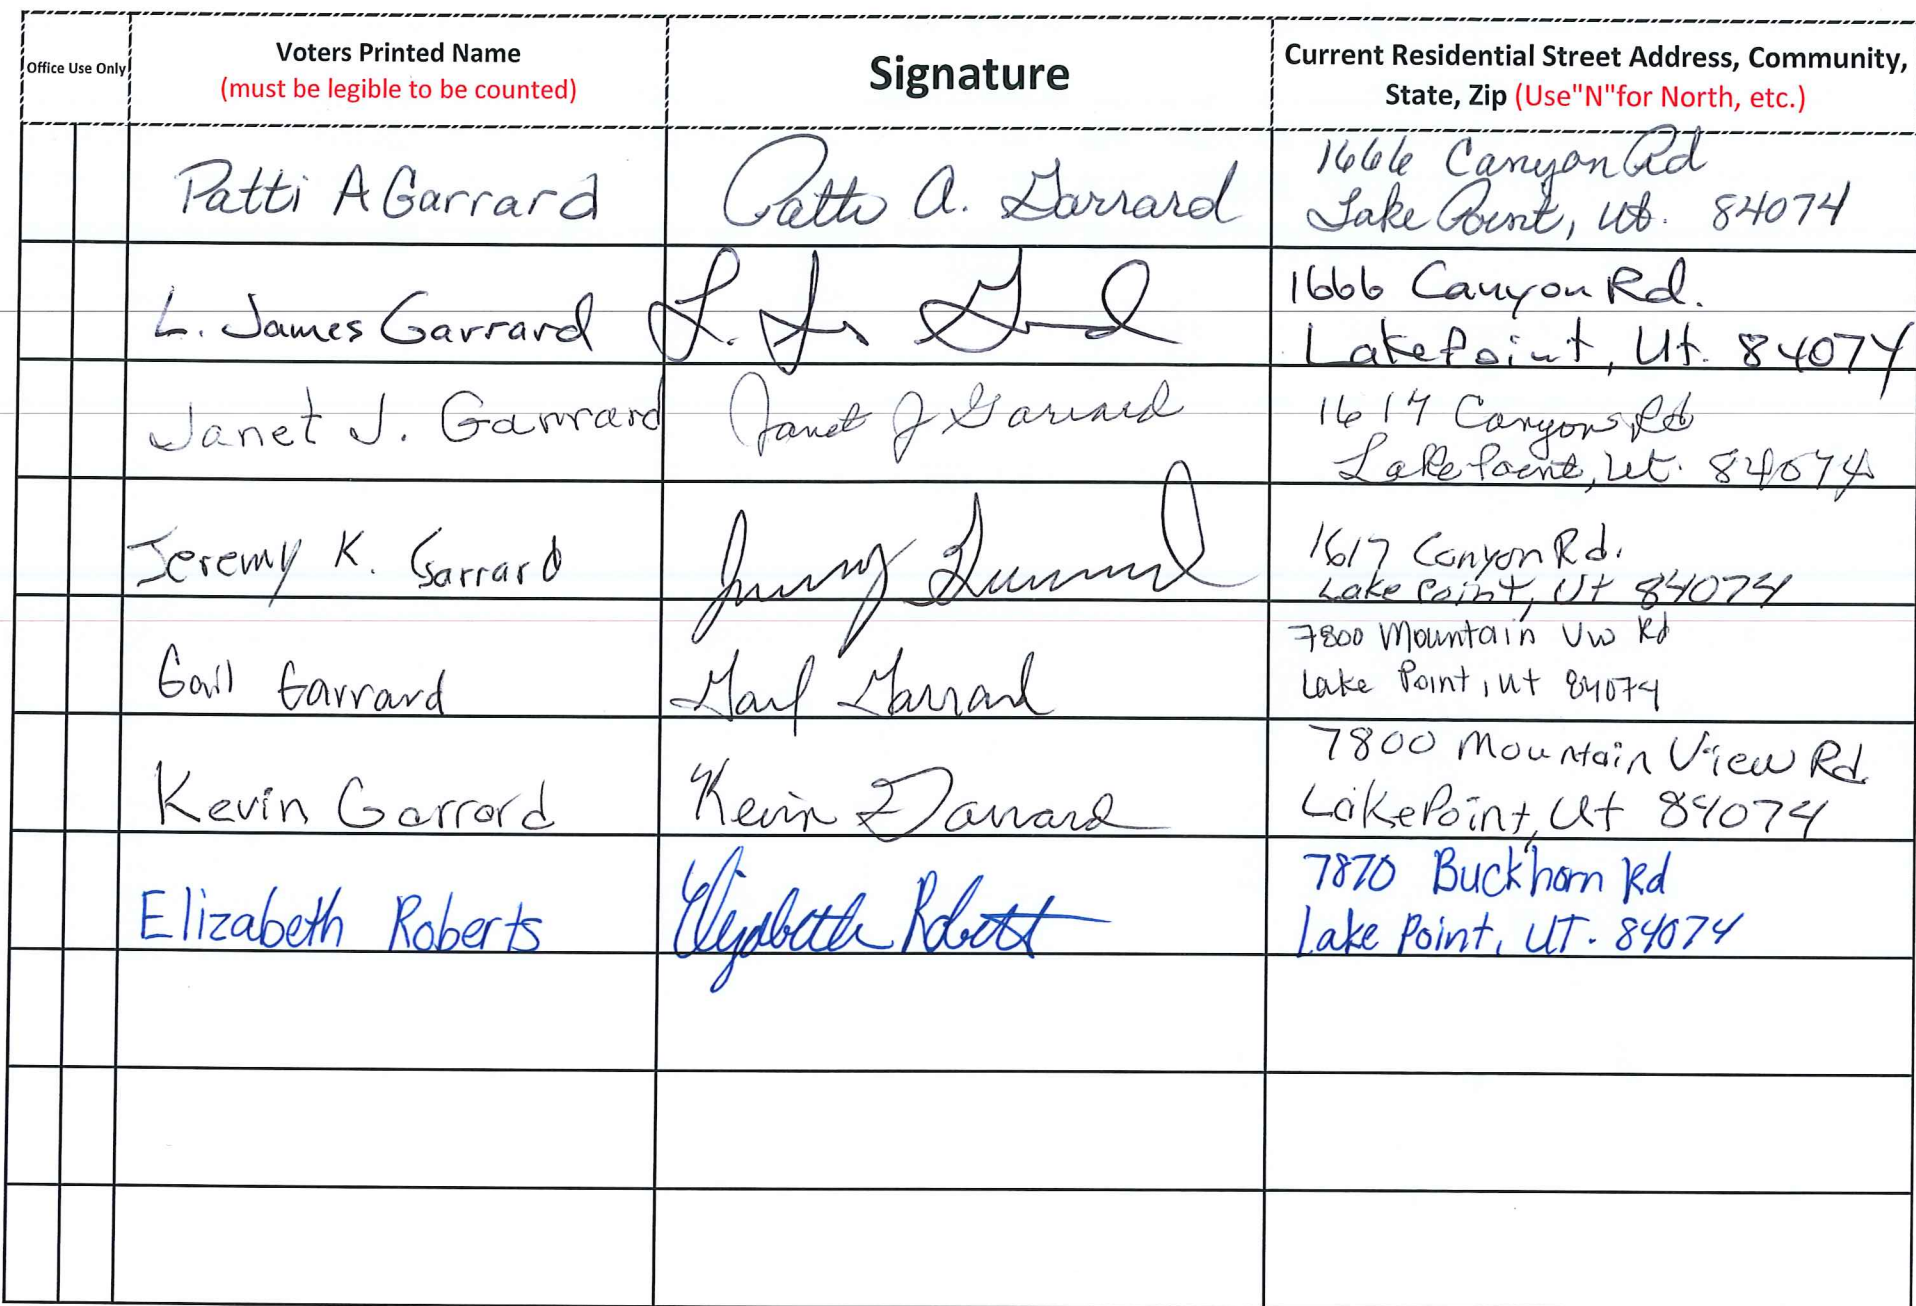 Office Use Only
Voters Printed Name
(must be legible to be counted)
Signature
Current Residential Street Address, Community,
State, Zip (Use"N"for North, etc.)
Patti A Garrard
Patti A. Garrard
1666 Canyon Rd
Lake Point, Ut. 84074
L. James Garrard
L. J. G
1666 Canyon Rd.
Lake Point, Ut. 84074
Janet J. Garrard
Janet J Garrard
1617 Canyon Rd
Lake Point, Ut. 84074
Jeremy K. Garrard
Jeremy Garrard
1617 Canyon Rd.
Lake Point, Ut 84074
Gail Garrard
Gail Garrard
7800 Mountain Vw Rd
Lake Point, Ut 84074
Kevin Garrard
Kevin Garrard
7800 Mountain View Rd
Lake Point, Ut 84074
Elizabeth Roberts
Elizabeth Roberts
7870 Buckhorn Rd
Lake Point, UT. 84074